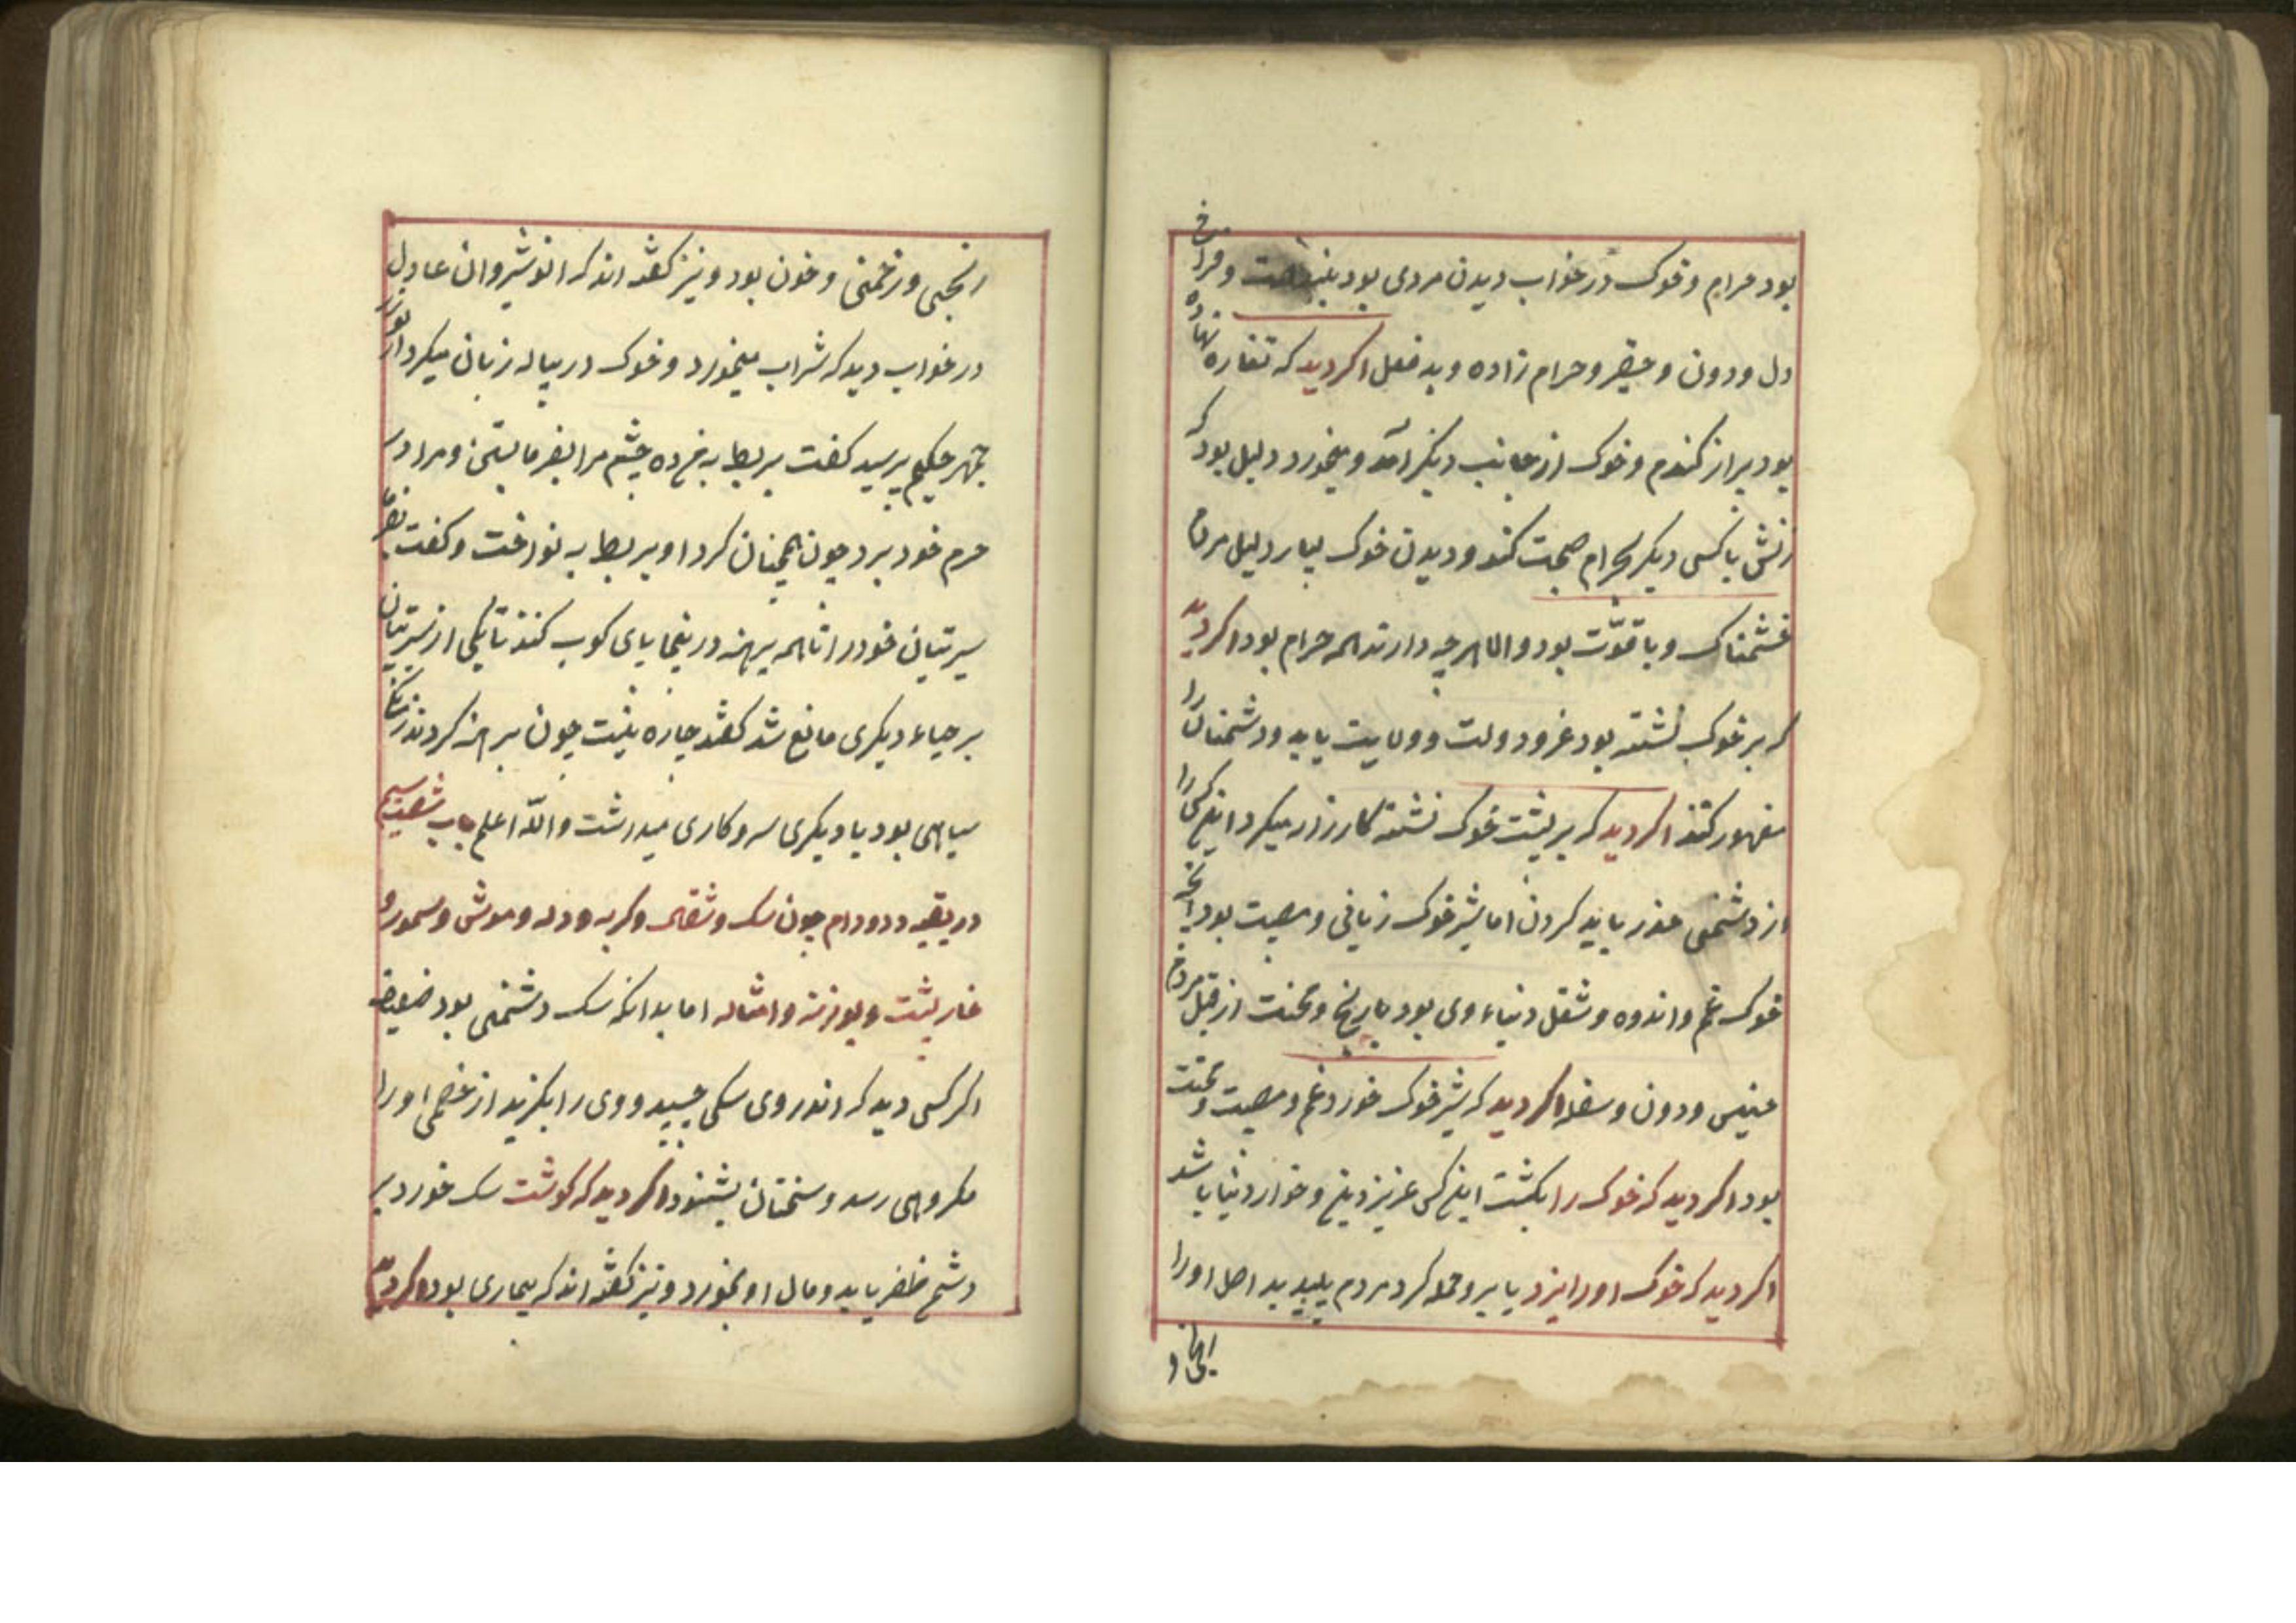 بود حرام و خوک در خواب دیدن مردی بود و فراخ
دل و دون و حقیر و حرام زاده و بد فعل اکر دید که تغاره نهاده
بود پر از کندم و خوک از جانب دیکر آمد و میخورد دلیل بود که
زنش با کسی دیکر بحرام صحبت کند و دیدن خوک بسیار دلیل مردی
خشمناک و با قوّت بود و الا هر چه دارند همه حرام بود اکر دید
که بر خوک نشسته بود عز و دولت و ولایت یابد و دشمنان را
مقهور کند اکر دید که بر پشت خوک نشسته کارزار میکرد این کس را
از دشمنی حذر باید کردن اما شیر خوک زیانی و مصیبت بود
خوک غم و اندوه و شغل دنیاء وی بود یا رنج و محنت از قبل مردم
خسیس و دون و سفله اکر دید که شیر خوک خورد غم و مصیبت و محنت
بود اکر دید که خوک را بکشت این کس عزیز دین و خوار دنیا باشد
اکر دید که خوک او را بزد یا برو حمله کرد مردم پلید بد اصل او را
رنجی و زخمی و خون بود و نیز کفته اند که انوشیروان عادل
در خواب دید که شراب میخورد و خوک در پیاله زبان میکرد از بوزر
جمهر حکیم پرسید کفت بربطا به چشم مرا بفرمای و مرا در
حرم خود برد چون همچنان کرد او بربطا به نواخت و کفت
سریتیان خود را تا همه برهنه در اینجا پای کوب کنند تا یکی از سریتیان
بر حیاء دیکری مانع شد کفتند چاره نیست چون برهنه کردند
سیاهی بود با دیکری سر و کاری میداشت والله اعلم باب شصت
در بقیه دد و دام چون سک و شغال و کربه و دله و موش و سمور و
خار پشت و بوزنه و امثاله اما بدانکه سک دشمنی بود ضعیف
اکر کسی دید که اندر وی سکی چسپید و وی را بکزید از خصمی او را
مکروهی رسد و سخنان بشنود اکر دید که کوشت سک خورد بر
دشمن ظفر یابد و مال او بخورد و نیز کفته اند که بیماری بود و اکر دید